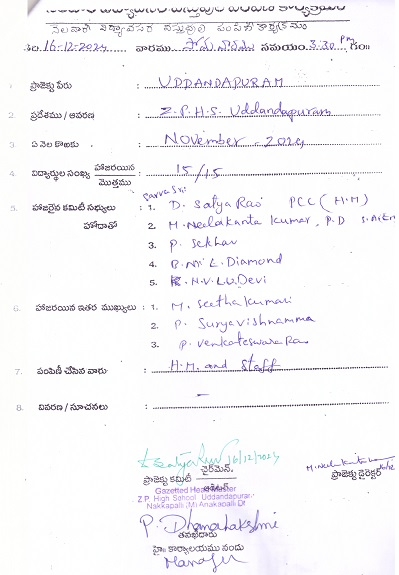 నెలవారీ విద్యావసర వస్తువుల పంపిణీ కార్యక్రమము
తేది 16-12-2024 వారము సోమవారము సమయం 3:30 PM గం॥
1. ప్రాజెక్టు పేరు : UDDANDAPURAM
2. ప్రదేశము / ఆవరణ : Z.P.H.S. Uddandapuram
3. ఏ నెల కొఱకు : November - 2024
4. విద్యార్థుల సంఖ్య హాజరయిన / మొత్తము : 15/15
5. హాజరైన కమిటీ సభ్యులు హోదాతో :
Sarvasri
1. D. Satya Rao PCC (H.M)
2. M. Neelakanta Kumar, P.D
3. P. Sekhar
4. B.M.L. Diamond
5. K.N.V.L.U.Devi
6. హాజరయిన ఇతర ముఖ్యులు : 1. M. Seethakumari
2. P. Suryavishnamma
3. P. Venkateswara Rao
7. పంపిణీ చేసిన వారు : H.M. and Staff
8. వివరణ / సూచనలు : -
16/12/2024
ప్రాజెక్టు కమిటీ ఛైర్మెన్
ప్రాజెక్టు డైరెక్టర్
Gazetted Head Master
Z.P. High School Uddandapuram
Nakkapalli (M) Anakapalli Dt
P. Dhanalakshmi
తనఖీదారు
హై: కార్యాలయము నందు
Manager